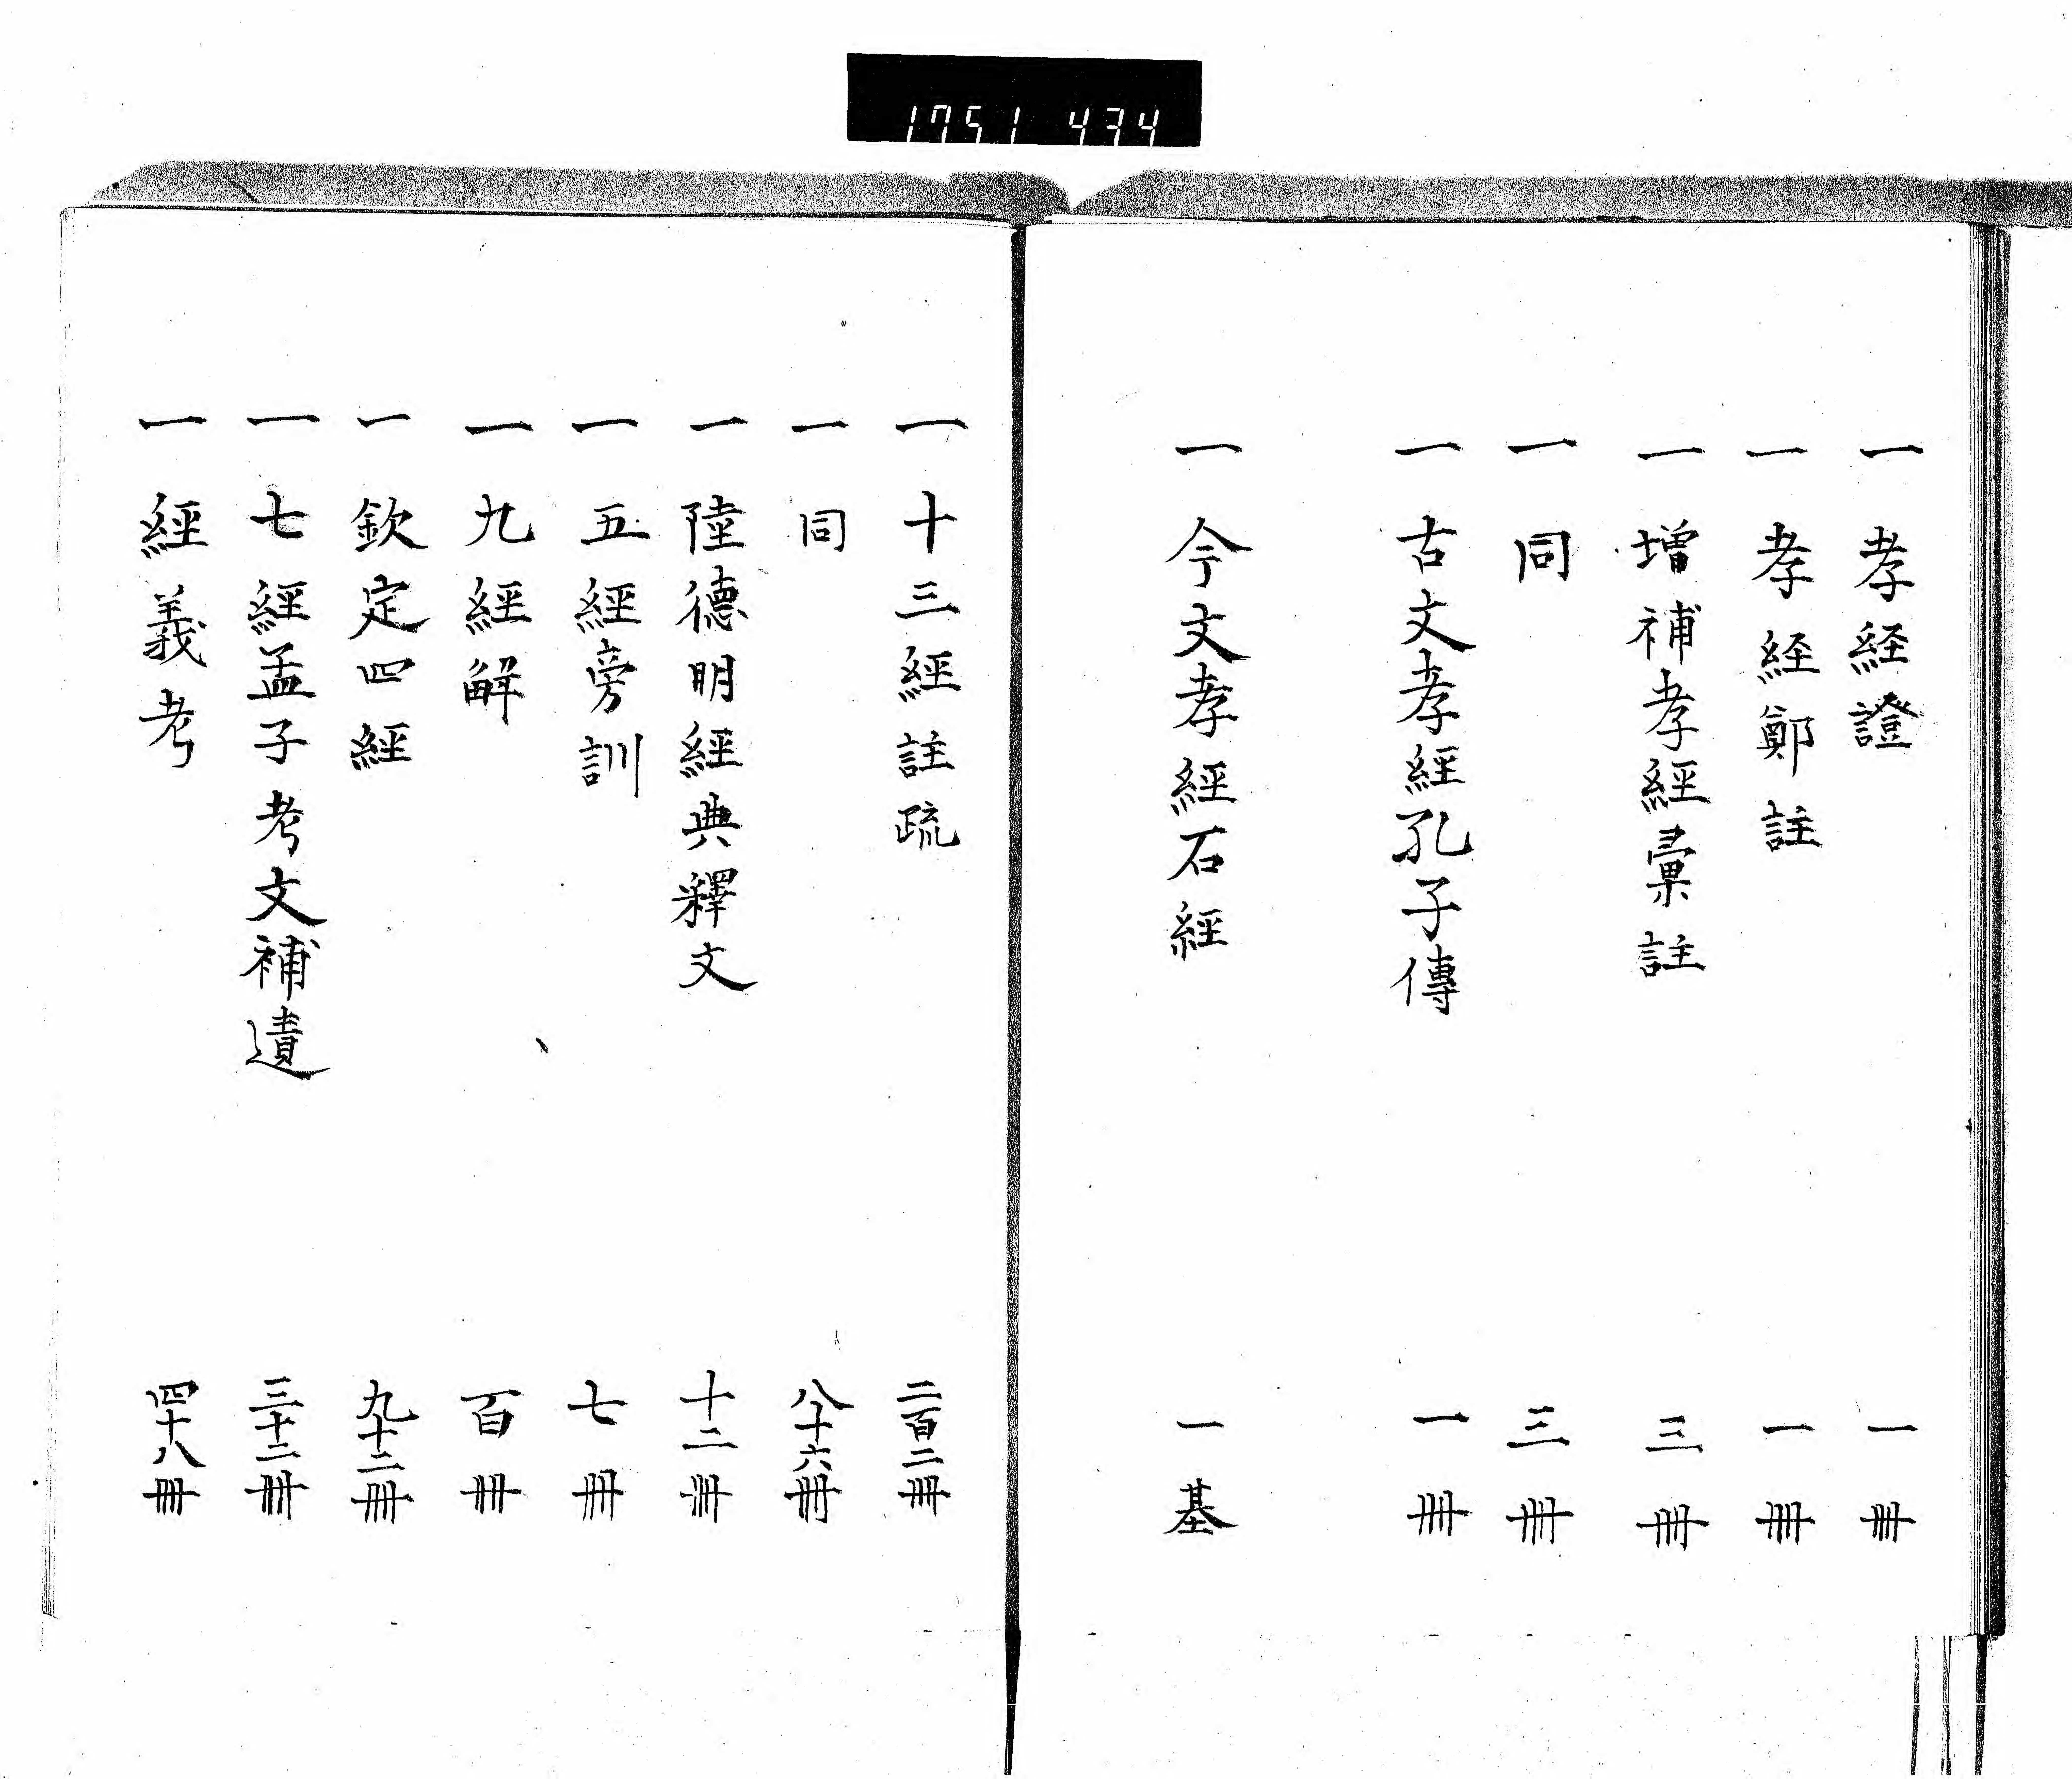 1751 434
一 孝経證 一冊
一 孝経鄭註 一冊
一 增補孝經彙註 三冊
一 同 三冊
一 古文孝經孔子傳 一冊
一 今文孝經石經 一基
一 十三經註疏 二百二冊
一 同 八十六冊
一 陸德明經典釋文 十二冊
一 五經旁訓 七冊
一 九經解 百冊
一 欽定四經 九十二冊
一 七經孟子考文補遺 三十二冊
一 經義考 四十八冊